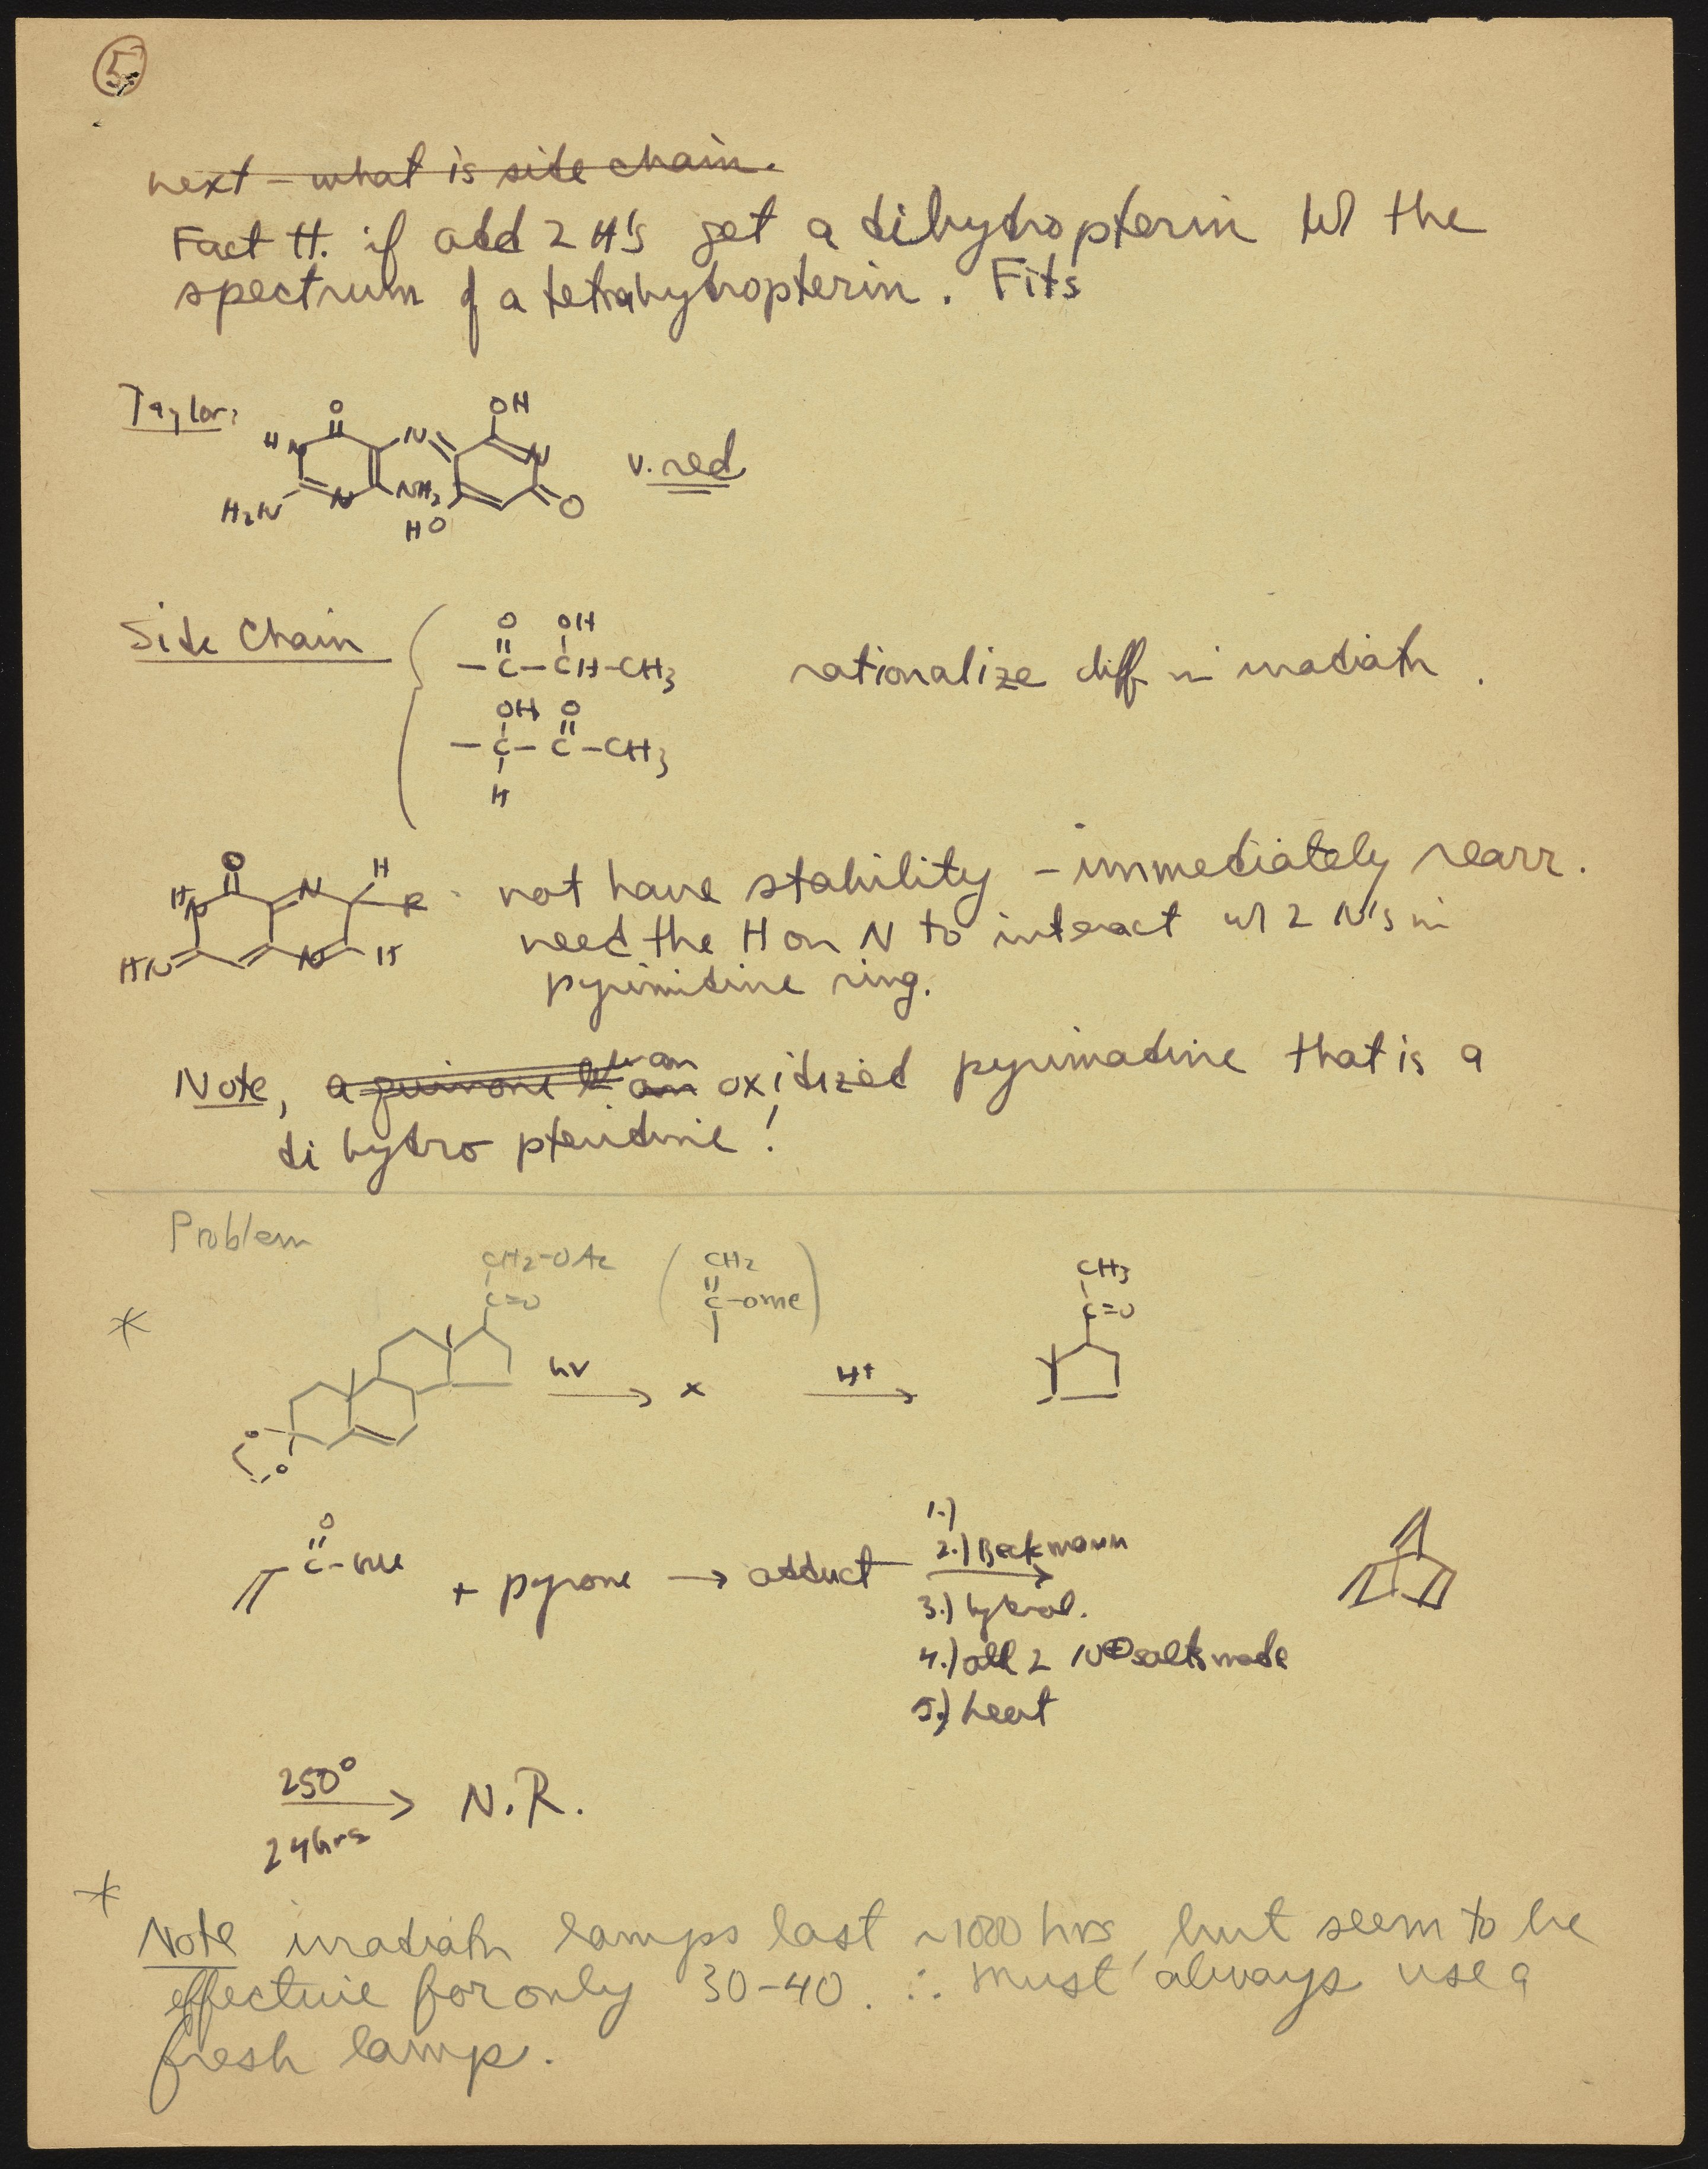 5
next - what is side chain.
Fact H. if add 2 H's get a dihydropterin w/ the
spectrum of a tetrahydropterin. Fits
Taylor:
O
OH
H N
N
N
v. red
H₂N
N
NH₂
O
HO
Side Chain
O OH
-C-CH-CH₃
rationalize diff in irradiatn.
OH O
-C-C-CH₃
H
O
H
H N
N
R
not have stability - immediately rearr.
need the H on N to interact w/ 2 N's in
HN
N
H
pyrimidine ring.
Note, a quinone an an oxidized pyrimadine that is a
dihydro pteridine!
Problem
CH₂-OAc
C=O
(CH₂
C-OMe)
CH₃
C=O
*
hν
x
H⁺
O
O
1.)
O
C-Me
+ pyrone → adduct
2.) Beckmann
3.) hydrol.
4.) all 2 N⊕ salts made
5.) heat
250°
→ N.R.
24 hrs
*
Note irradiatn lamps last ~1000 hrs, but seem to be
effective for only 30-40. ∴ must always use a
fresh lamp.